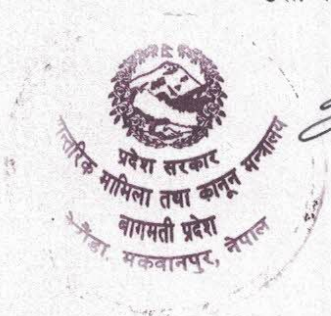 प्रदेश सरकार
आन्तरिक मामिला तथा कानून मन्त्रालय
बागमती प्रदेश
हेटौंडा, मकवानपुर, नेपाल